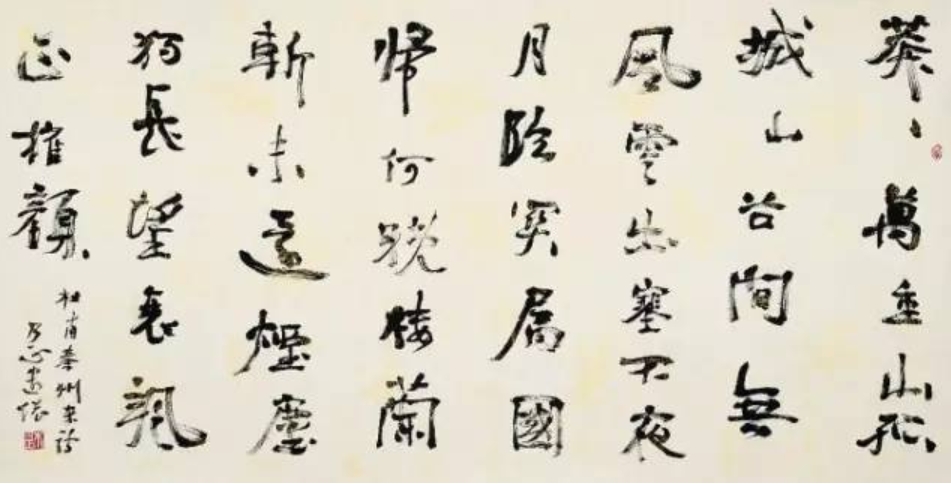 莽〻萬重山孤
城山谷間無
風雲出塞不夜
月臨関屬國
歸何晚樓蘭
斬未還煙塵
獨長望衰颯
正摧顏
杜甫秦州杂詩